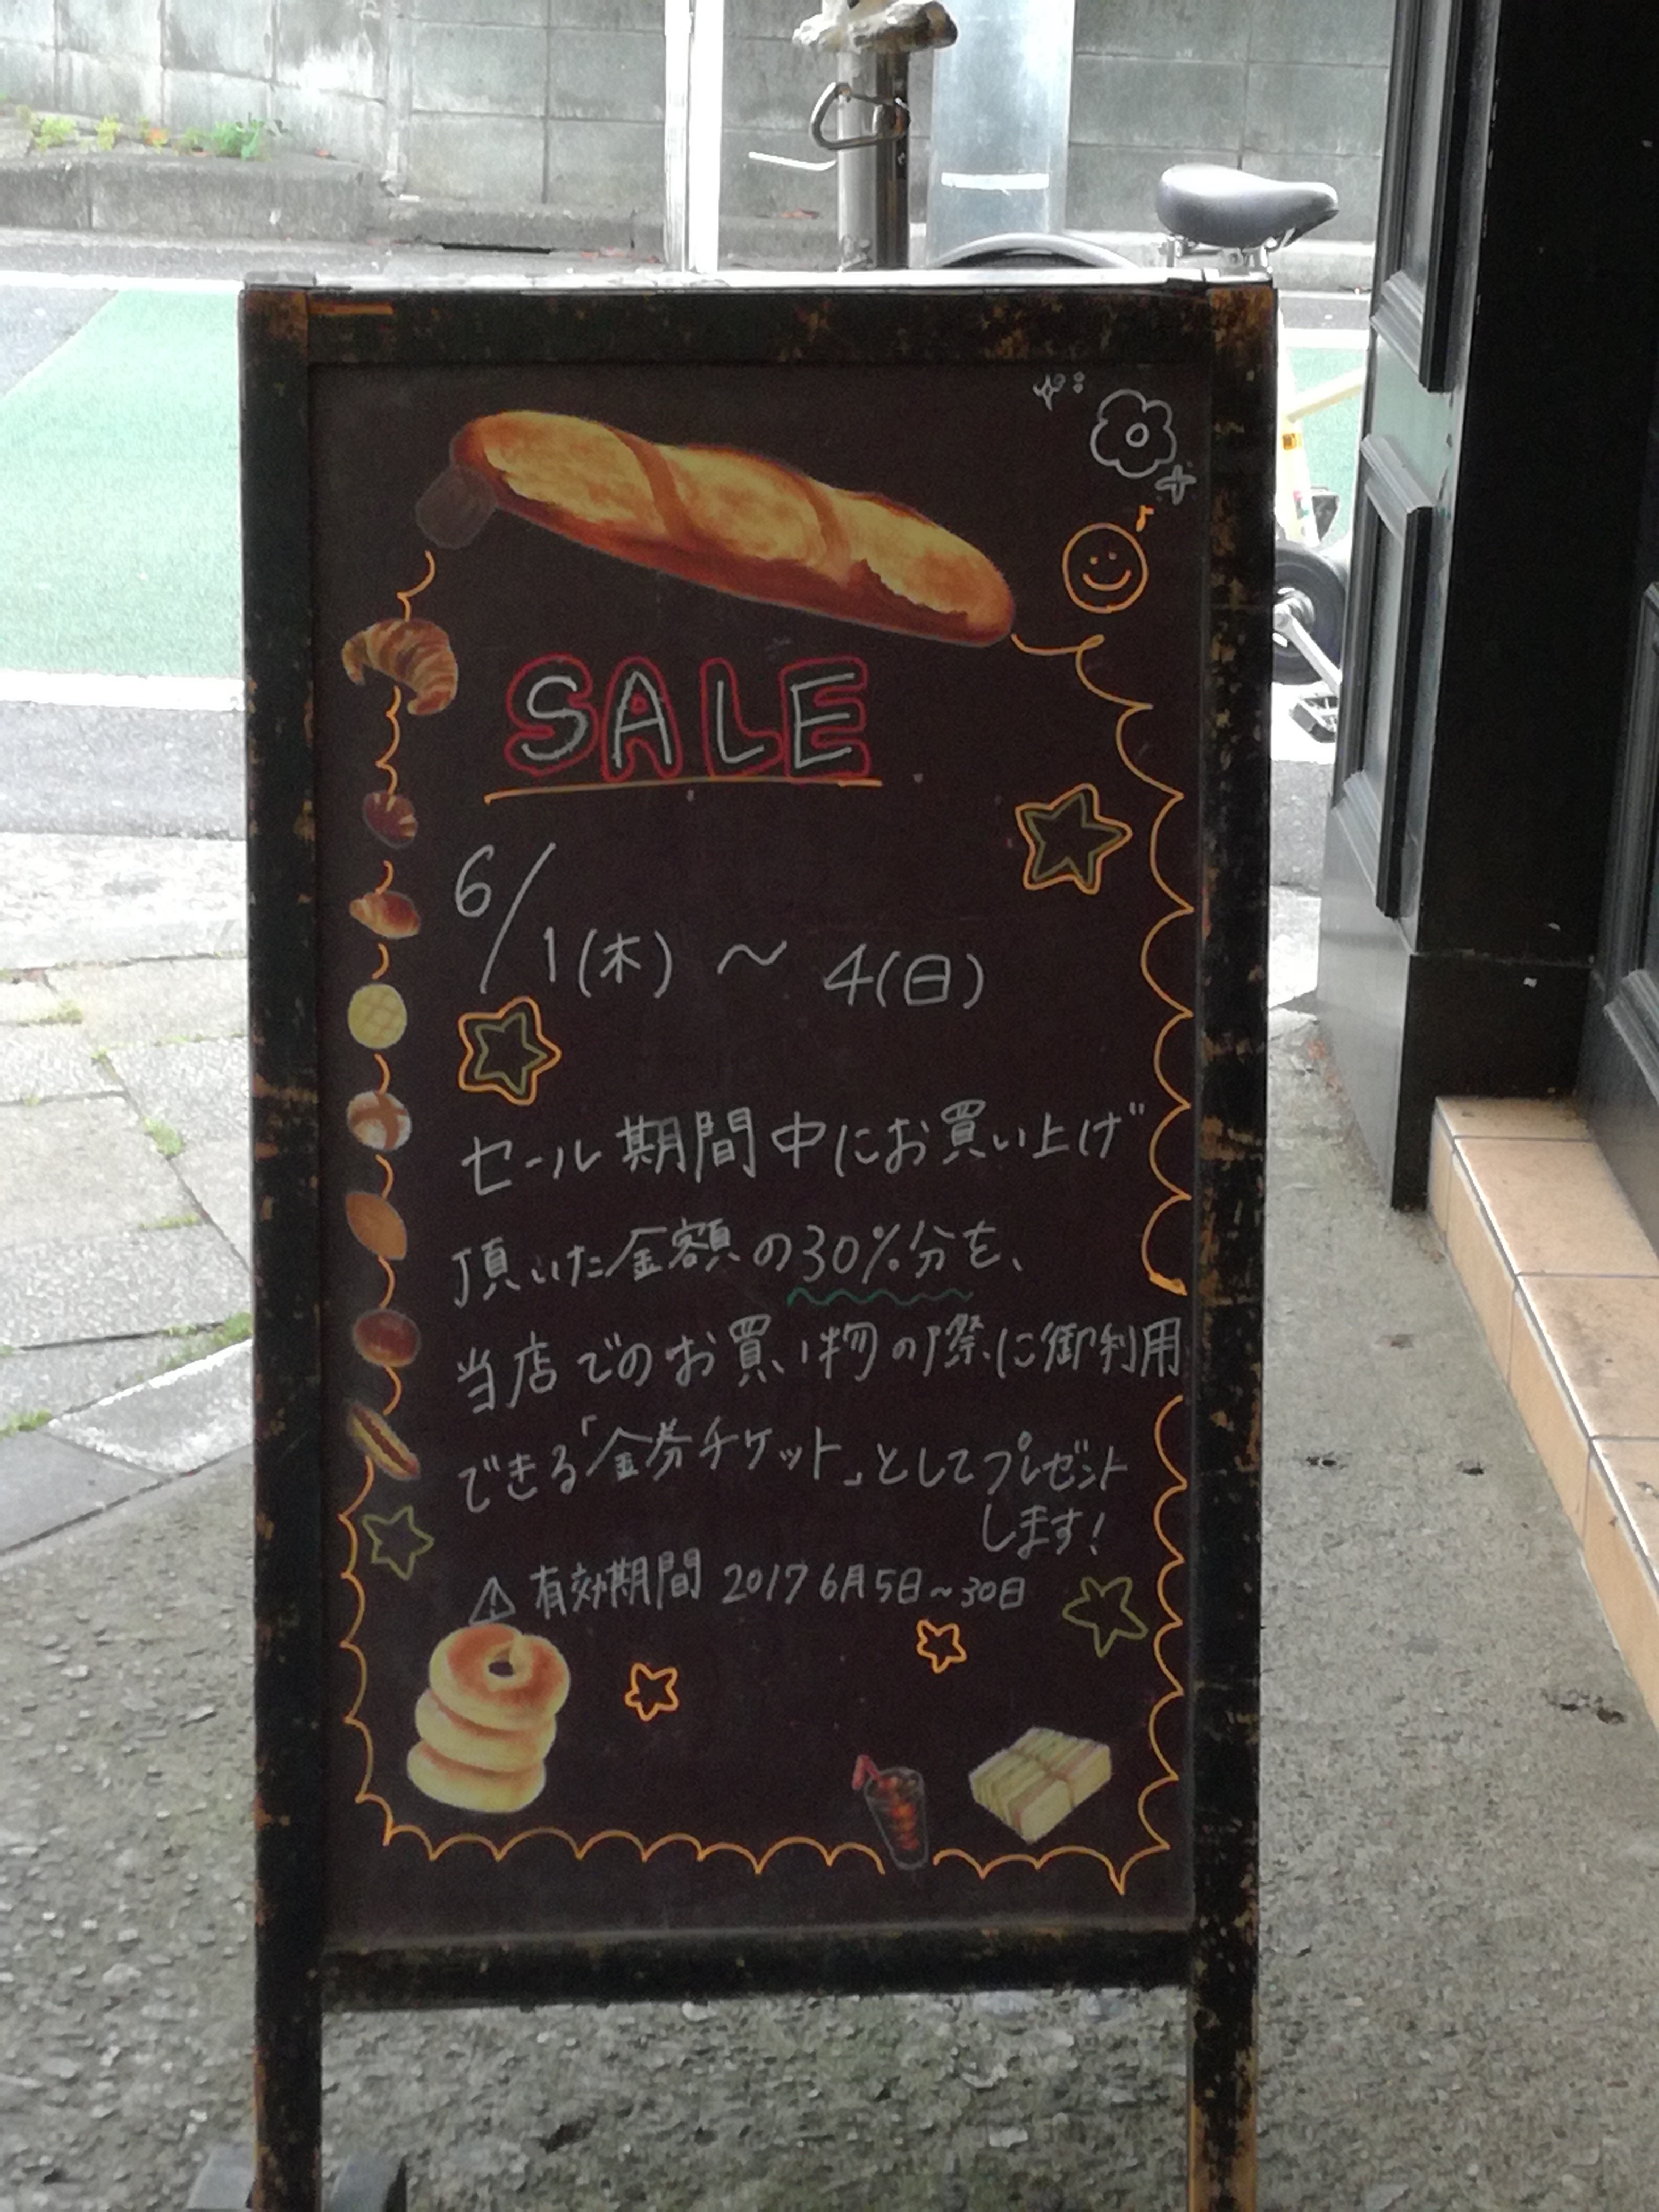 SALE
6/1(木)〜4(日)
セール期間中にお買い上げ
頂いた金額の30%分を、
当店でのお買い物の際に御利用
できる「金券チケット」としてプレゼント
します!
⚠有効期間 2017 6月5日~30日